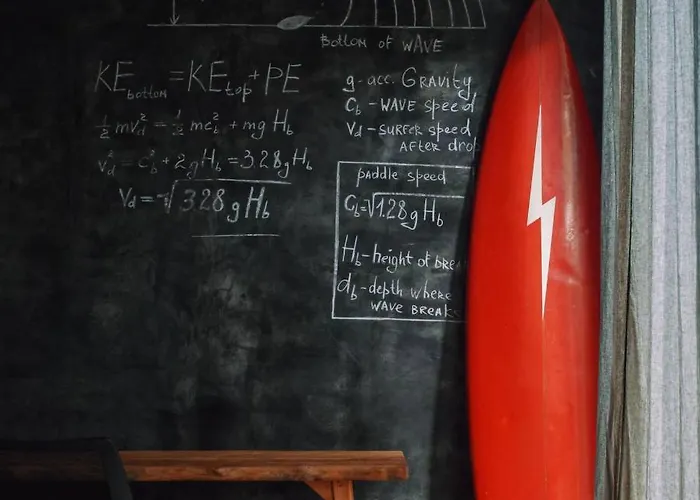 Bottom of WAVE
KE bottom = KE top + PE
½ mv_d² = ½ mc_b² + mg H_b
v_d² = c_b² + 2gH_b = 3.28gH_b
V_d = √3.28 g H_b
g - acc. GRAVITY,
C_b - WAVE speed
V_d - SURFER speed
AFTER drop
paddle speed
C_b = √1.28 g H_b
H_b - height of BRE
d_b - depth where
WAVE BREAK